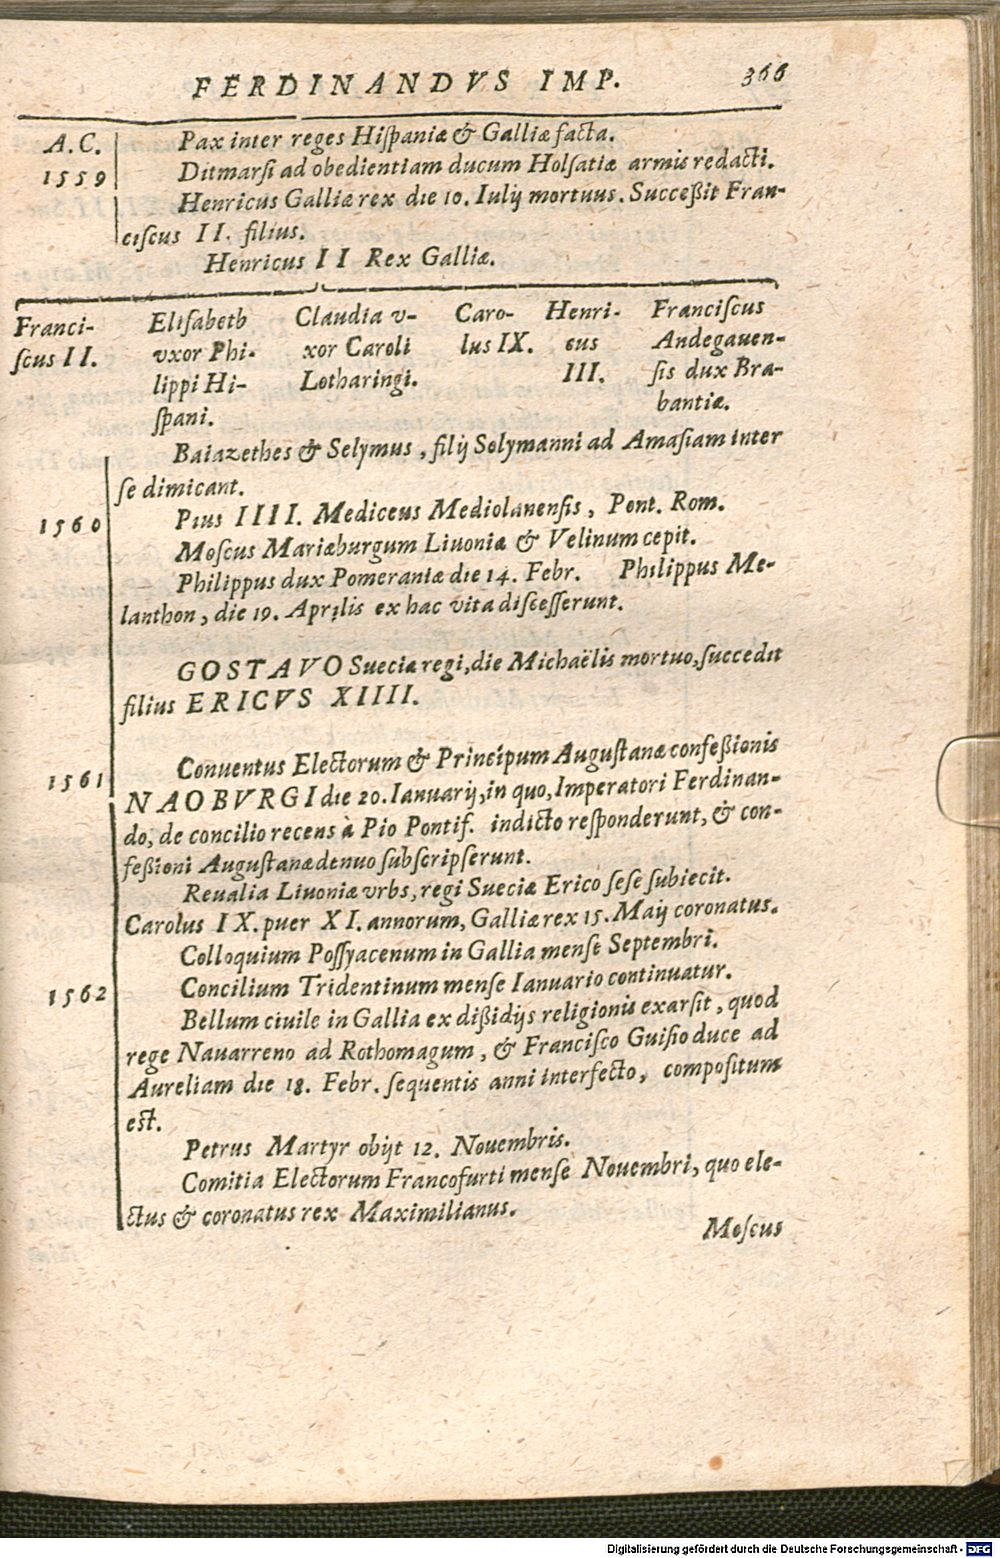 FERDINANDVS IMP. 366
A. C. Pax inter reges Hiſpaniæ & Galliæ facta.
1559 Ditmarſi ad obedientiam ducum Holſatiæ armis redacti.
Henricus Galliæ rex die 10. Iulij mortuus. Succeßit Fran-
ciſcus II. filius.
Henricus II Rex Galliæ.
Franci- Eliſabeth Claudia v- Caro- Henri- Franciſcus
ſcus II. vxor Phi- xor Caroli lus IX. cus Andegauen-
lippi Hi- Lotharingi. III. ſis dux Bra-
ſpani. bantiæ.
Baiazethes & Selymus, filij Solymanni ad Amaſiam inter
ſe dimicant.
1560 Pius IIII. Mediceus Mediolanenſis, Pont. Rom.
Moſcus Mariæburgum Liuoniæ & Velinum cepit.
Philippus dux Pomeraniæ die 14. Febr. Philippus Me-
lanthon, die 19. Aprilis ex hac vita diſceſſerunt.
GOSTAVO Sueciæ regi, die Michaëlis mortuo, ſuccedit
filius ERICVS XIIII.
Conuentus Electorum & Principum Auguſtanæ confeßionis
1561 NAOBVRGI die 20. Ianuarij, in quo, Imperatori Ferdinan-
do, de concilio recens à Pio Pontif. indicto reſponderunt, & con-
feßioni Auguſtanæ denuo ſubſcripſerunt.
Reualia Liuoniæ vrbs, regi Sueciæ Erico ſeſe ſubiecit.
Carolus IX. puer XI. annorum, Galliæ rex 15. Maij coronatus.
Colloquium Poſſyacenum in Gallia menſe Septembri.
1562 Concilium Tridentinum menſe Ianuario continuatur.
Bellum ciuile in Gallia ex dißidijs religionis exarſit, quod
rege Nauarreno ad Rothomagum, & Franciſco Guiſio duce ad
Aureliam die 18. Febr. ſequentis anni interfecto, compoſitum
eſt.
Petrus Martyr obijt 12. Nouembris.
Comitia Electorum Francofurti menſe Nouembri, quo ele-
ctus & coronatus rex Maximilianus.
Moſcus
Digitalisierung gefördert durch die Deutsche Forschungsgemeinschaft - DFG